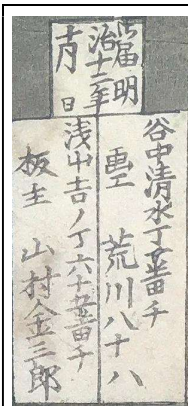 御届明
治十二年
十月　日
谷中清水丁五番チ
画工　荒川八十八
浅艸吉ノ丁六十五番チ
板主　山村金三郎